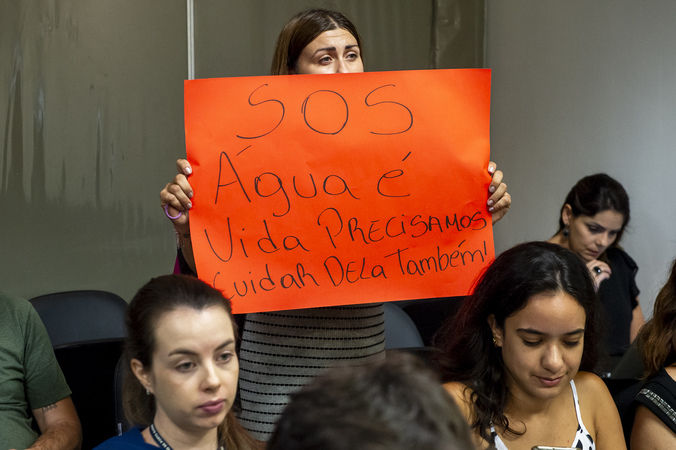 SOS
Água é
Vida PRECISAMOS
Cuidar DELA Também!